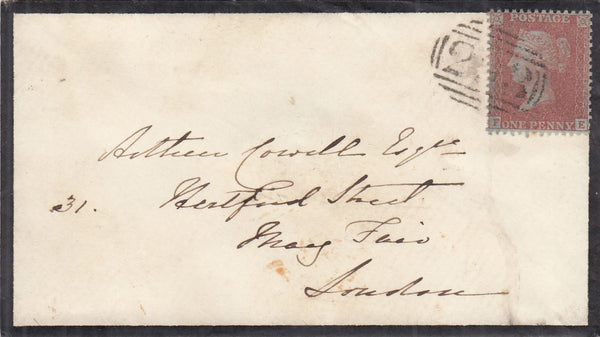 POSTAGE
ONE PENNY
E
Arthur Cowell Esqre
31. Hertford Street
May Fair
London